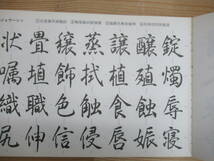 錠燭辱寝
醸殖蝕娠
譲植食唇
蒸拭蝕侵
穣飾色信
畳植職伸
状嘱織尻